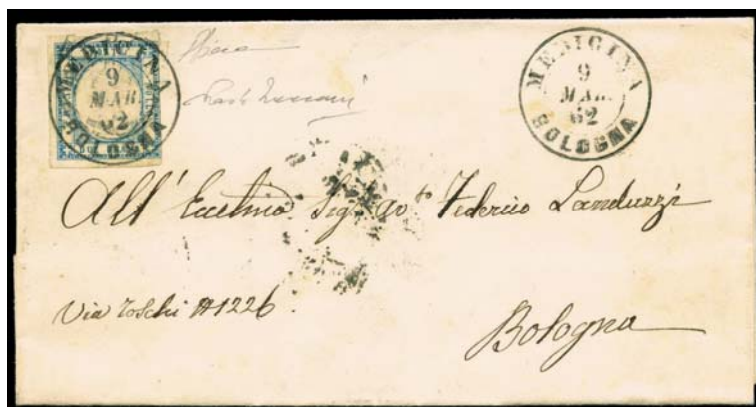 MEDICINA
9
MAR.
62
BOLOGNA
MEDICINA
9
MAR.
62
BOLOGNA
All' Ecc.mo Sig. Av.to Federico Landuzzi
Via Toschi N 1226.
Bologna